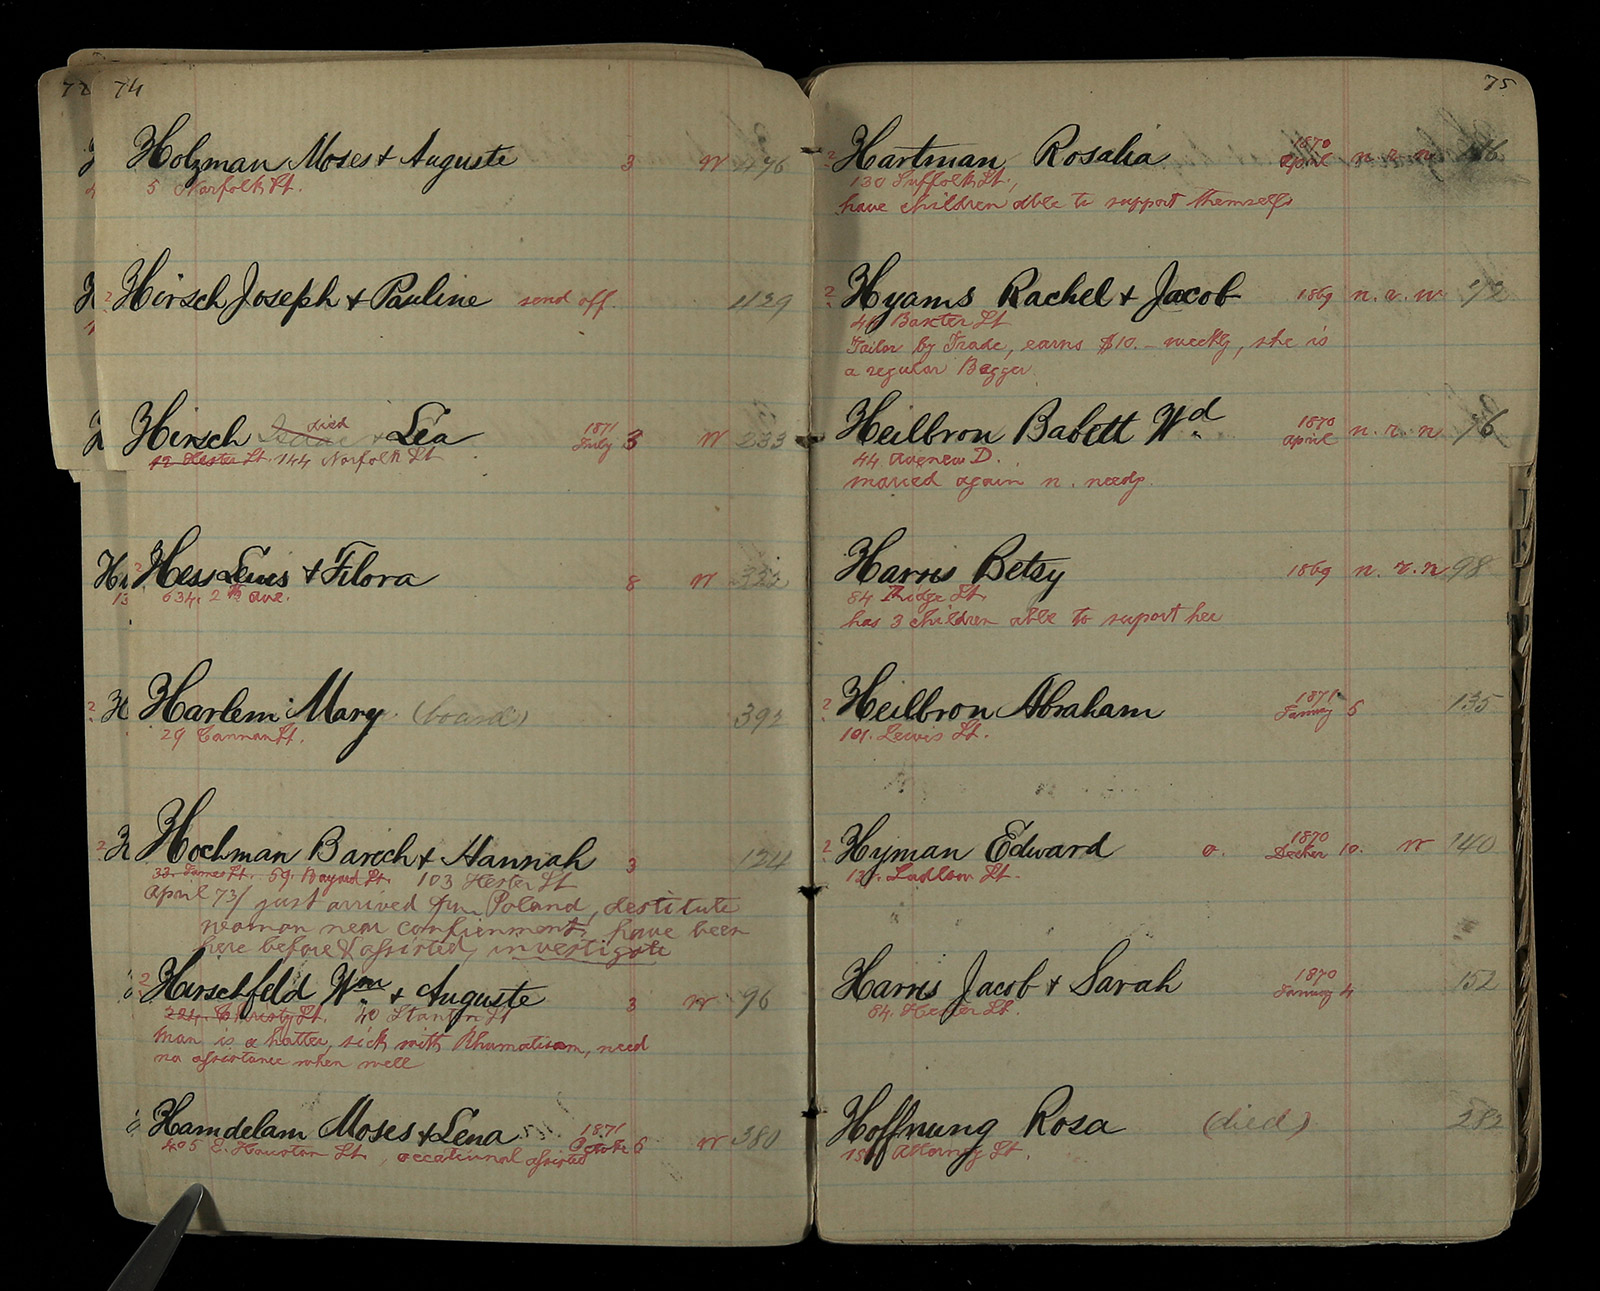 74
Holzman Moses & Auguste 3 W 476
5 Norfolk St.
Hirsch Joseph & Pauline send off. 1139
died
Hirsch Isaac & Lea 1871 July 3 W 233
12 Hester St. 144 Norfolk St
Hess Lewis & Filora 8 W 322
634. 2th ave.
Harlem Mary (board) 392
29 Cannan St.
Hochman Barech & Hannah 3 124
32 James St. 59. Bayard St. 103 Hester St
April 73/ just arrived frm Poland, destitute
woman near confienment, have been
here before & assisted, investigate
Hirschfeld Wm & Auguste 3 W 96
224. Christy St. 40 Stanton St
Man is a hatter, sick with Rhumatism, need
no assistance when well
Hamdelam Moses & Lena 1871 October 6 W 380
405 E. Houston St, occational assisted
75
2 Hartman Rosalia 1870 April n. r. n
130 Suffolk St.,
have children able to support themself
2 Hyams Rachel & Jacob 1869 n. r. w 72
Baxter St
Tailor by Trade, earns $10. – weekly, she is
a regular Begger
Heilbron Babett Wd. 1870 April n. r. n 76
44 Avenew D.
maried again n. needy.
Harris Betsy 1869 n. r. n 98
84 Ridge St
has 3 children able to suport her
2 Heilbron Abraham 1871 January 5 135
101. Lewis St.
2 Hyman Edward o. 1870 Decber 10. W 140
Ludlow St.
Harris Jacob & Sarah 1870 January 4 152
84. Hester St.
Hoffnung Rosa (died) 282
Attorney St.